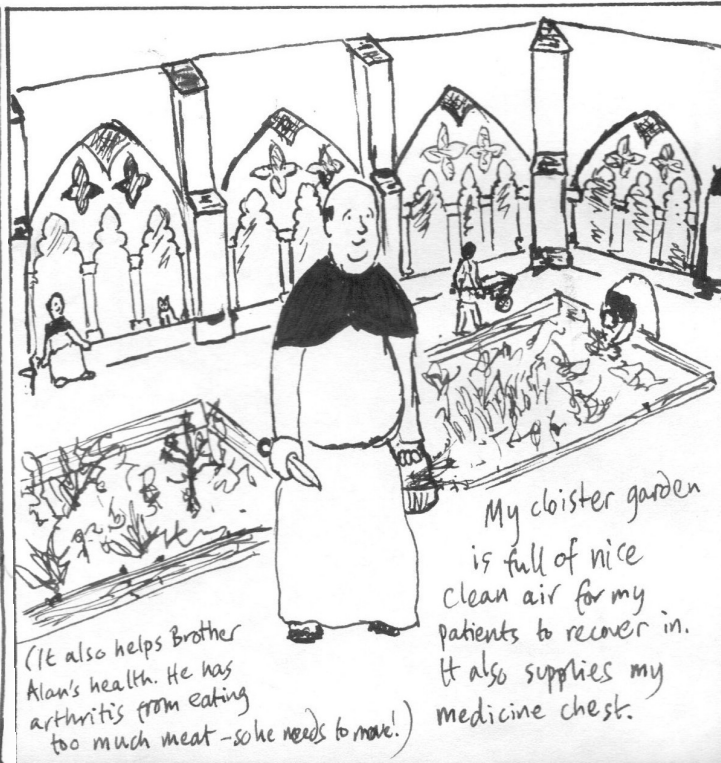 My cloister garden
is full of nice
clean air for my
patients to recover in.
It also supplies my
medicine chest.
(It also helps Brother
Alan's health. He has
arthritis from eating
too much meat - so he needs to move!)